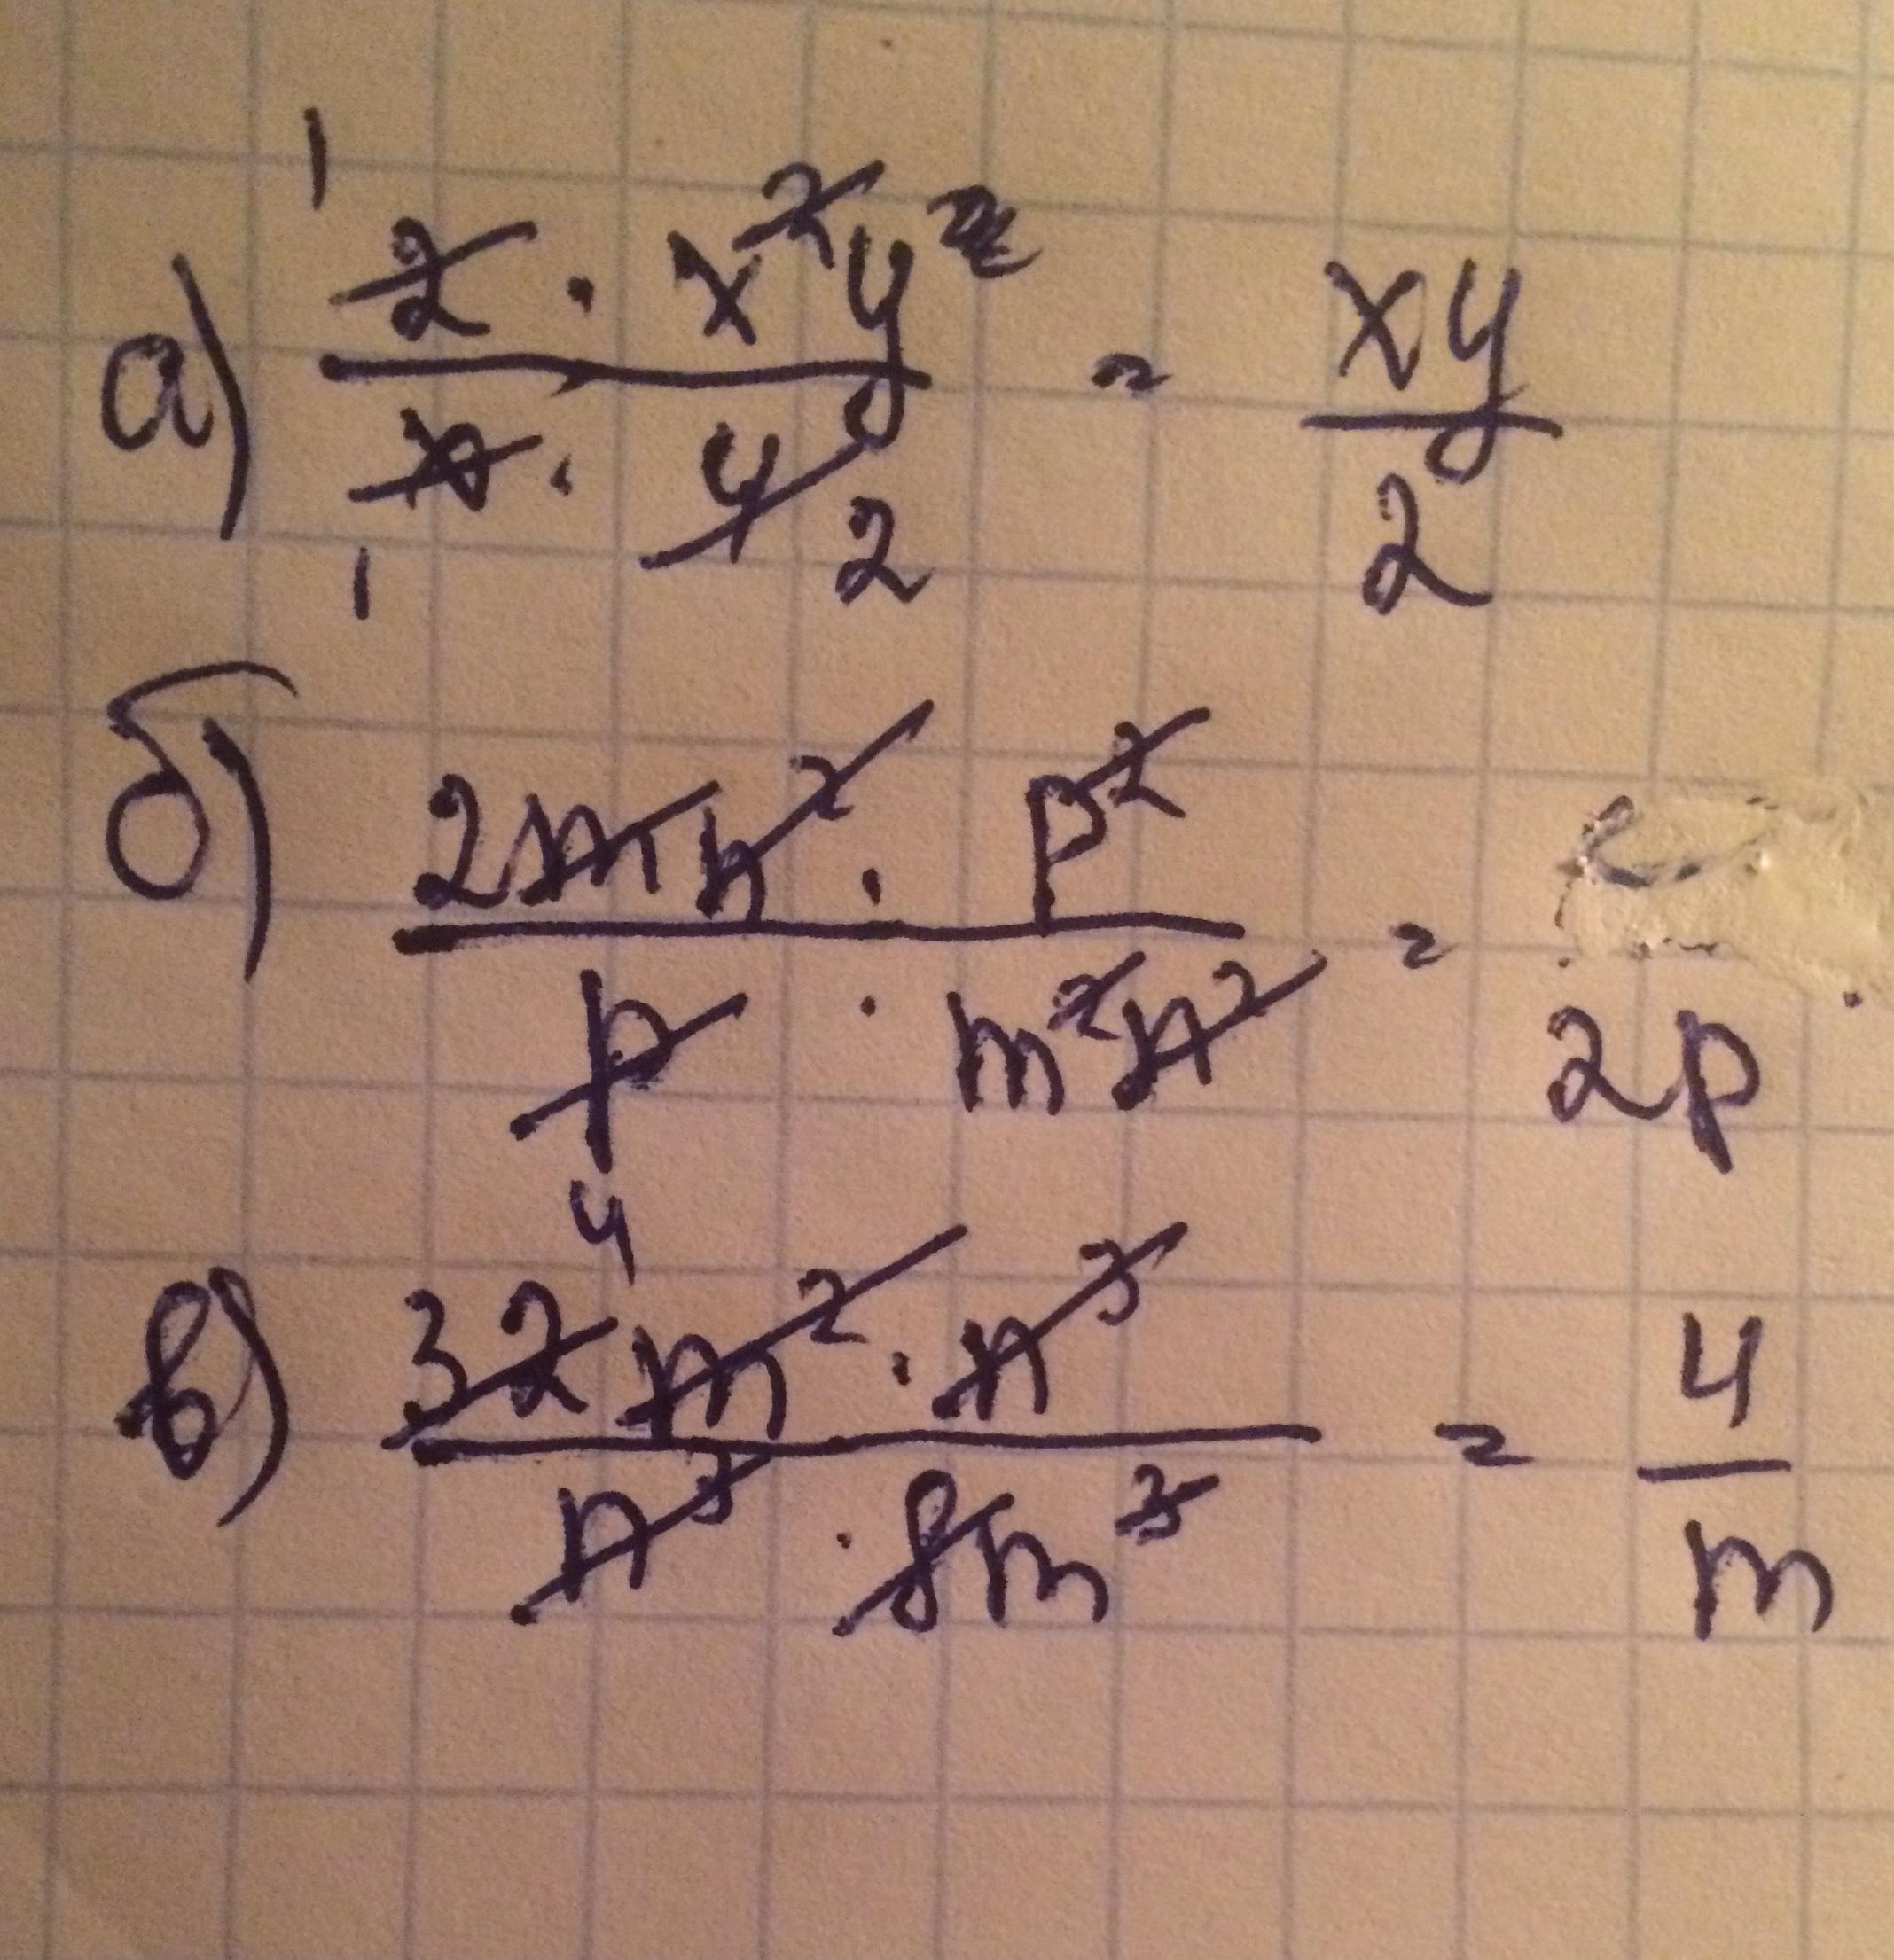 а) 2 · x²y / x · 4 2 = xy / 2
б) 2mn² · p² / p · m²n² = 2p
в) 32 4 m² · n³ / n³ · 8m³ = 4 / m